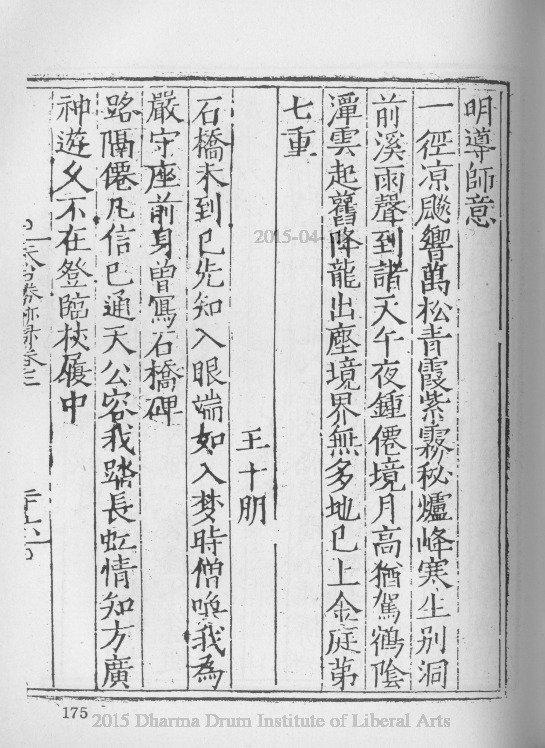 明導師意
一徑凉飈響萬松青霞紫霧秘爐峰寒生别洞
前溪雨聲到諸天午夜鍾僊境月高猶駕鶴陰
潭雲起舊降龍出塵境界無多地已上金庭第
七重
王十朋
石橋未到已先知入眼端如入梦時僧喚我為
嚴守座前身曾寫石橋碑
路隔僊凡信已通天公容我踏長虹情知方廣
神遊久不在登臨杖履中
175
2015-04-
2015 Dharma Drum Institute of Liberal Arts